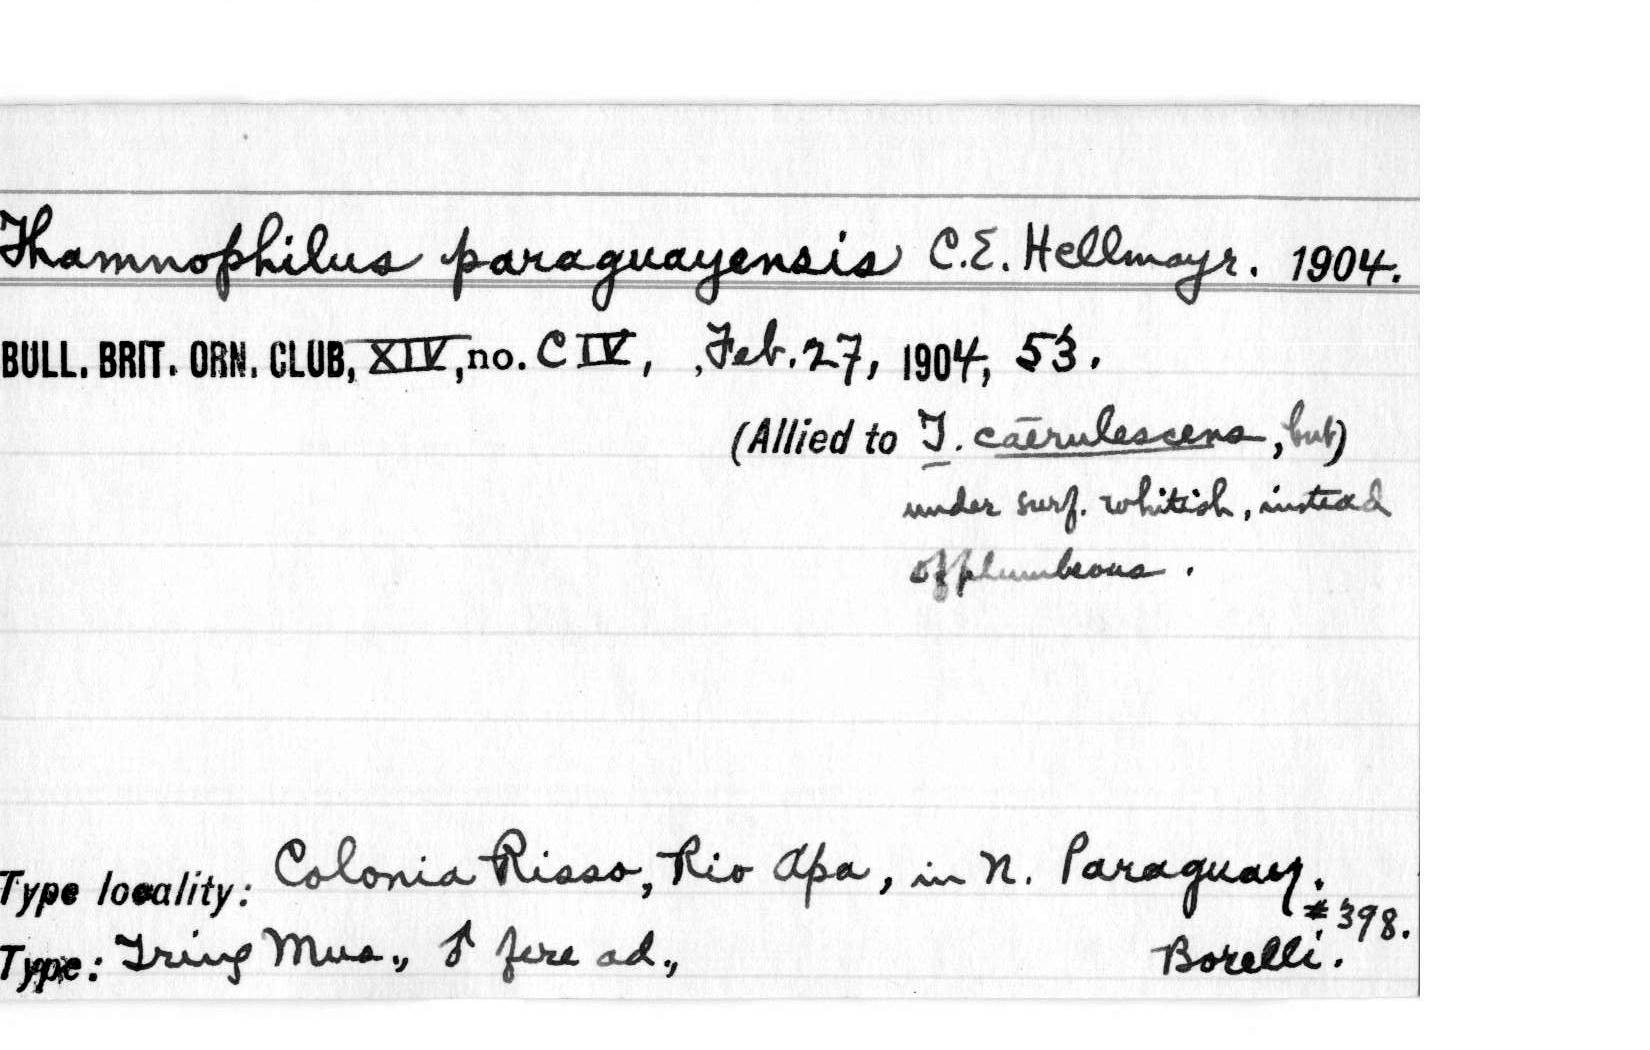 Thamnophilus paraguayensis C.E. Hellmayr. 1904.
BULL. BRIT. ORN. CLUB, XIV, no. CIV, , Feb. 27, 1904, 53.
(Allied to T. caerulescens, but)
under surf. whitish, instead
of plumbeous.
Type locality: Colonia Risso, Rio Apa, in N. Paraguay.
#398.
Type: Tring Mus., ♂ fere ad., Borelli.